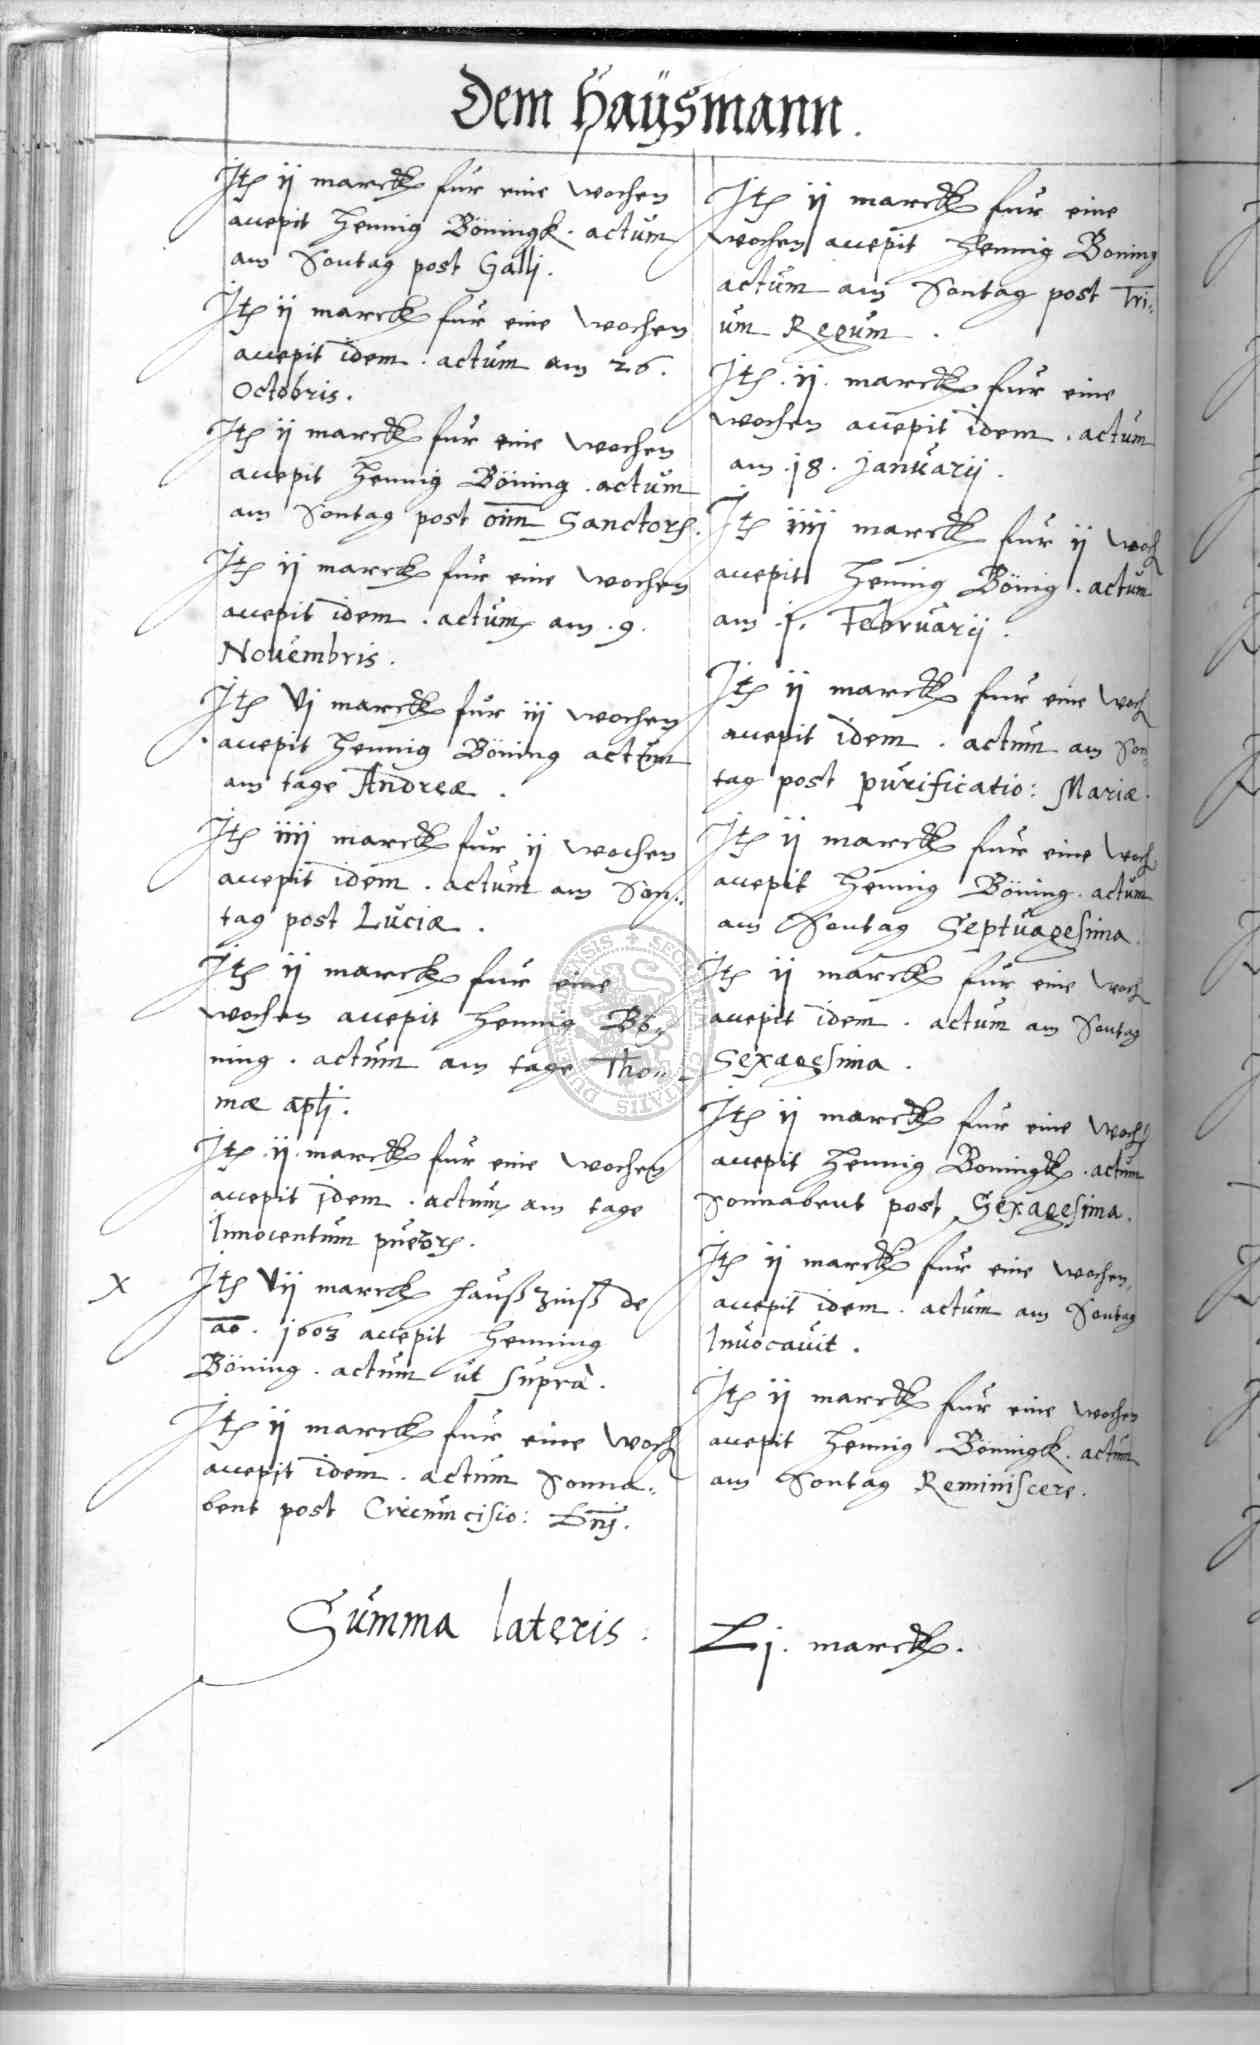 Dem Haüsmann.
Itē ij marck für eine wochen
accepit Hennig Böningk. actum
am Sontag post Galli.
Itē ij marck für eine wochen
accepit idem. actum am 26.
Octobris.
Itē ij marck für eine wochen
accepit Hennig Böning. actum
am Sontag post oīm Sanctorū.
Itē ij marck für eine wochen
accepit idem. actum am. 9.
Novembris.
Itē vj marck für iij wochen
accepit Hennig Böning actum
am tage Andreæ.
Itē iiij marck für ij wochen
accepit idem. actum am Son-
tag post Luciæ.
Itē ij marck für eine
wochen accepit Hennig Bö-
ning. actum am tage Tho-
mæ apli.
Itē. ij. marck für eine wochen
accepit idem. actum am tage
Innocentum puerorū.
X Itē vij marck haußzinß de
ao. 1603 accepit Henning
Böning. actum ut supra.
Itē ij marck für eine woch
accepit idem. actum Sonna-
bent post Circumcisio: Dnj.
Itē ij marck für eine
wochen accepit Hennig Boning
actum am Sontag post Tri-
um Regum.
Itē. ij. marck für eine
wochen accepit idem. actum
am. 18. Januarij.
Itē iiij marck für ij woch
accepit Hennig Bönig. actum
am. 1. Februarij.
Itē ij marck für eine woch
accepit idem. actum am Son-
tag post purificatio: Mariæ.
Itē ij marck für eine woch
accepit Hennig Böning. actum
am Sontag Septuagesima.
Itē ij marck für eine woch
accepit idem. actum am Sontag
Sexagesima.
Itē ij marck für eine woch
accepit Hennig Boningk. actum
Sonnabent post Sexagesima.
Itē ij marck für eine wochen
accepit idem. actum am Sontag
Invocavit.
Itē ij marck für eine wochen
accepit Hennig Böningk. actum
am Sontag Reminiscere.
Summa lateris. Lj. marck.
SECRETUM CIVITATIS DUDERSTADENSIS